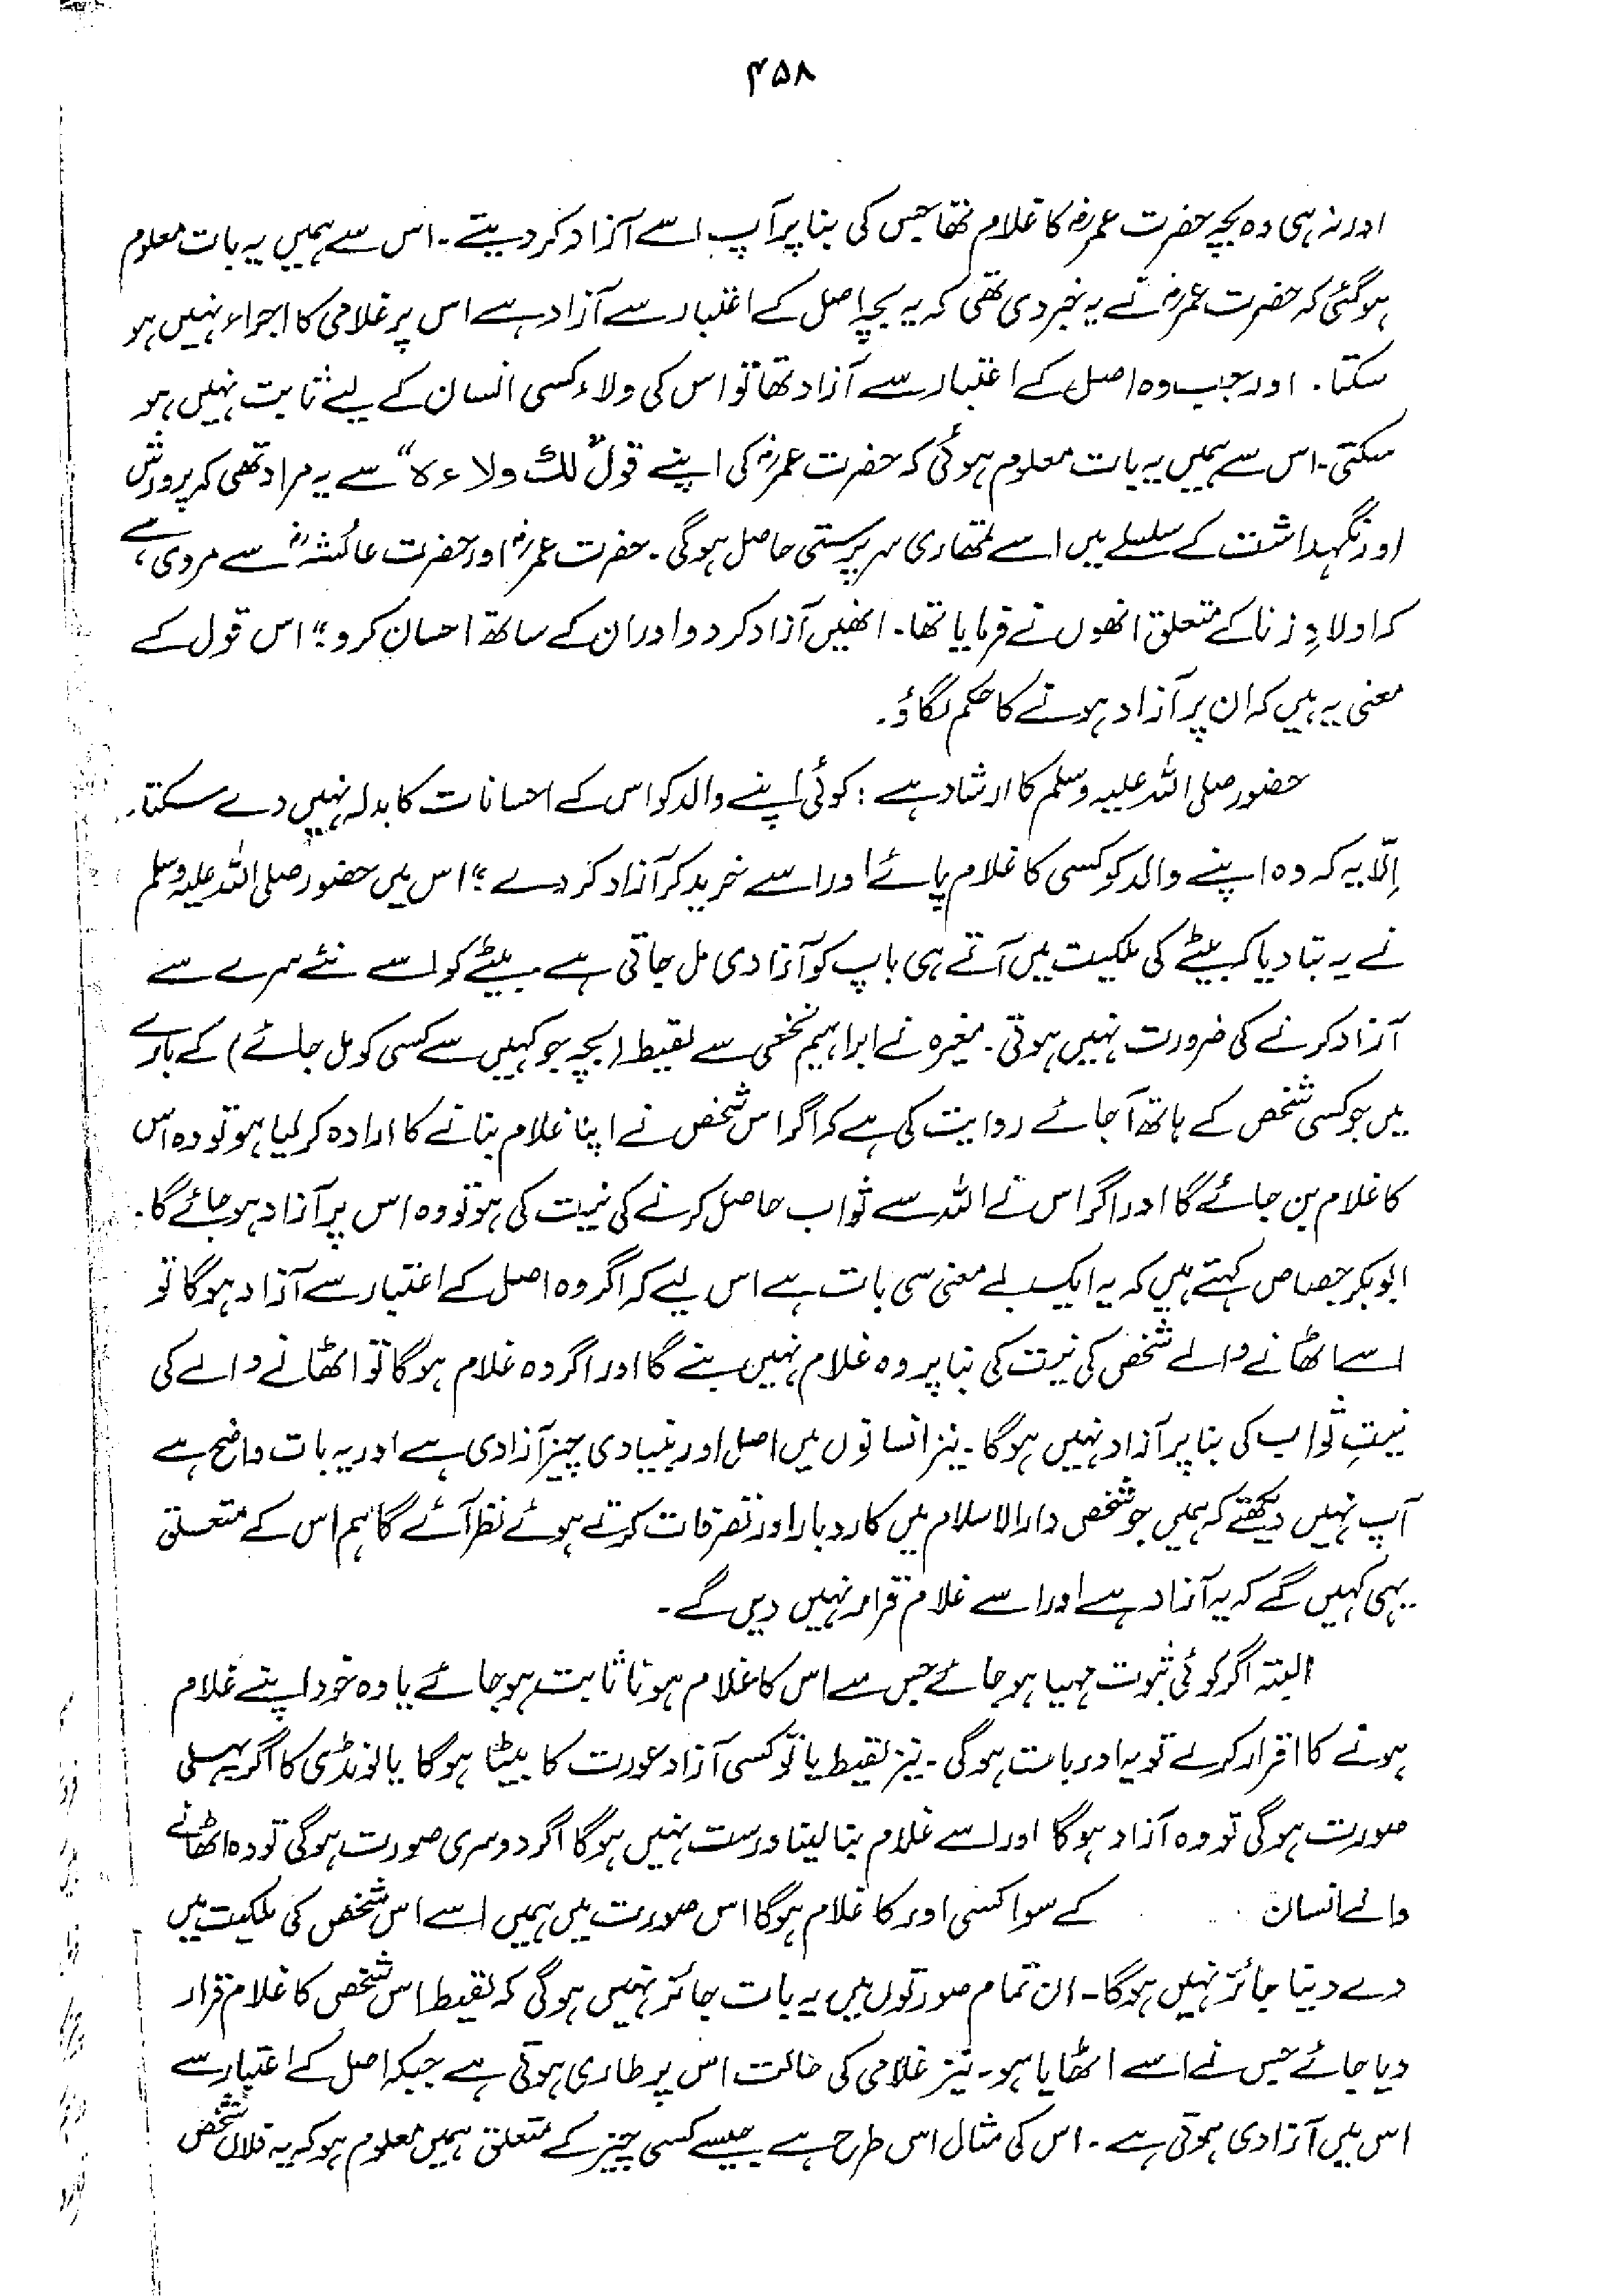 ۴۵۸
اور نہ ہی وہ بچہ حضرت عمرؓ کا غلام تھا جس کی بنا پر آپ اسے آزاد کر دیتے۔ اس سے ہمیں یہ بات معلوم
ہو گئی کہ حضرت عمرؓ نے یہ خبر دی تھی کہ یہ بچہ اصل کے اعتبار سے آزاد ہے اس پر غلامی کا اجراء نہیں ہو
سکتا۔ اور جب وہ اصل کے اعتبار سے آزاد تھا تو اس کی ولاء کسی انسان کے لیے ثابت نہیں ہو
سکتی۔ اس سے ہمیں یہ بات معلوم ہوئی کہ حضرت عمرؓ کی اپنے قول "لك ولاءه" سے یہ مراد تھی کہ پرورش
اور نگہداشت کے سلسلے میں اسے تمھاری سرپرستی حاصل ہوگی۔ حضرت عمرؓ اور حضرت عائشہؓ سے مروی ہے،
کہ اولادِ زنا کے متعلق انھوں نے فرمایا تھا۔ انھیں آزاد کر دو اور ان کے ساتھ احسان کرو"؛ اس قول کے
معنی یہ ہیں کہ ان پر آزاد ہونے کا حکم لگاؤ۔
حضور صلی اللہ علیہ وسلم کا ارشاد ہے: کوئی اپنے والد کو اس کے احسانات کا بدلہ نہیں دے سکتا۔
اِلّا یہ کہ وہ اپنے والد کو کسی کا غلام پائے اور اسے خرید کر آزاد کر دے"؛ اس میں حضور صلی اللہ علیہ وسلم
نے یہ بتا دیا کہ بیٹے کی ملکیت میں آتے ہی باپ کو آزادی مل جاتی ہے۔ بیٹے کو اسے نئے سرے سے
آزاد کرنے کی ضرورت نہیں ہوتی۔ مغیرہ نے ابراہیم نخعی سے لقیط (بچہ جو کہیں سے کسی کو مل جائے) کے بارے
میں جو کسی شخص کے ہاتھ آجائے روایت کی ہے کہ اگر اس شخص نے اپنا غلام بنانے کا ارادہ کر لیا ہو تو وہ اس
کا غلام بن جائے گا اور اگر اس نے اللہ سے ثواب حاصل کرنے کی نیت کی ہو تو وہ اس پر آزاد ہو جائے گا۔
ابوبکر جصاص کہتے ہیں کہ یہ ایک بے معنی سی بات ہے اس لیے کہ اگر وہ اصل کے اعتبار سے آزاد ہوگا تو
اسے اٹھانے والے شخص کی نیت کی بنا پر وہ غلام نہیں بنے گا اور اگر وہ غلام ہوگا تو اٹھانے والے کی
نیتِ ثواب کی بنا پر آزاد نہیں ہوگا۔ نیز انسانوں میں اصل اور بنیادی چیز آزادی ہے اور یہ بات واضح ہے
آپ نہیں دیکھتے کہ ہمیں جو شخص دارالاسلام میں کاروبار اور تصرفات کرتے ہوئے نظر آئے گا ہم اس کے متعلق
یہی کہیں گے کہ یہ آزاد ہے اور اسے غلام قرار نہیں دیں گے۔
البتہ اگر کوئی ثبوت مہیا ہو جائے جس سے اس کا غلام ہونا ثابت ہو جائے یا وہ خود اپنے غلام
ہونے کا اقرار کر لے تو یہ اور بات ہوگی۔ نیز لقیط یا تو کسی آزاد عورت کا بیٹا ہوگا یا لونڈی کا اگر پہلی
صورت ہوگی تو وہ آزاد ہوگا اور اسے غلام بنا لینا درست نہیں ہوگا اگر دوسری صورت ہوگی تو وہ اٹھانے
والے انسان کے سوا کسی اور کا غلام ہوگا اس صورت میں ہمیں اسے اس شخص کی ملکیت میں
دے دینا جائز نہیں ہوگا۔ ان تمام صورتوں میں یہ بات جائز نہیں ہوگی کہ لقیط اس شخص کا غلام قرار
دیا جائے جس نے اسے اٹھایا ہو۔ نیز غلامی کی حالت اس پر طاری ہوتی ہے جبکہ اصل کے اعتبار سے
اس میں آزادی ہوتی ہے۔ اس کی مثال اس طرح ہے جیسے کسی چیز کے متعلق ہمیں معلوم ہو کہ یہ فلاں شخص